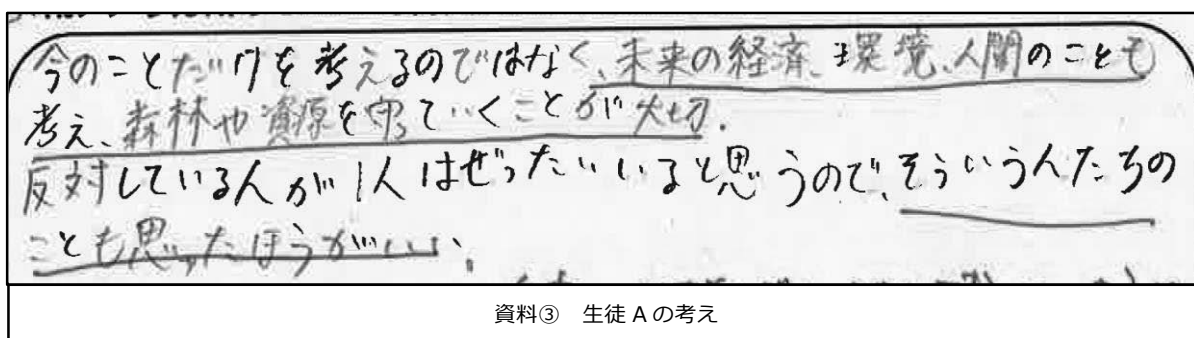 今のことだけを考えるのではなく、未来の経済、環境、人間のことも
考え、森林や資源を守っていくことが大切.
反対している人が1人はぜったいいると思うので、そういう人たちの
ことも思ったほうがいい、
資料③ 生徒 A の考え